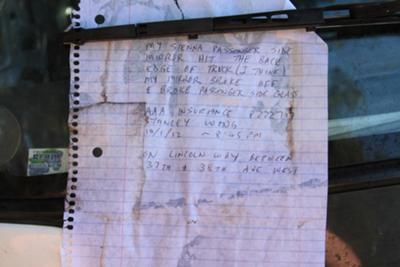 MY SIENNA PASSENGER SIDE
MIRROR HIT THE BACK
EDGE OF TRUCK (I THINK)
MY MIRROR BROKE OFF
& BROKE PASSENGER SIDE GLASS
AAA INSURANCE
STANLEY WONG
10/1/12 ~ 8:45 PM
ON LINCOLN WAY BETWEEN
37TH & 38TH AVE WEST